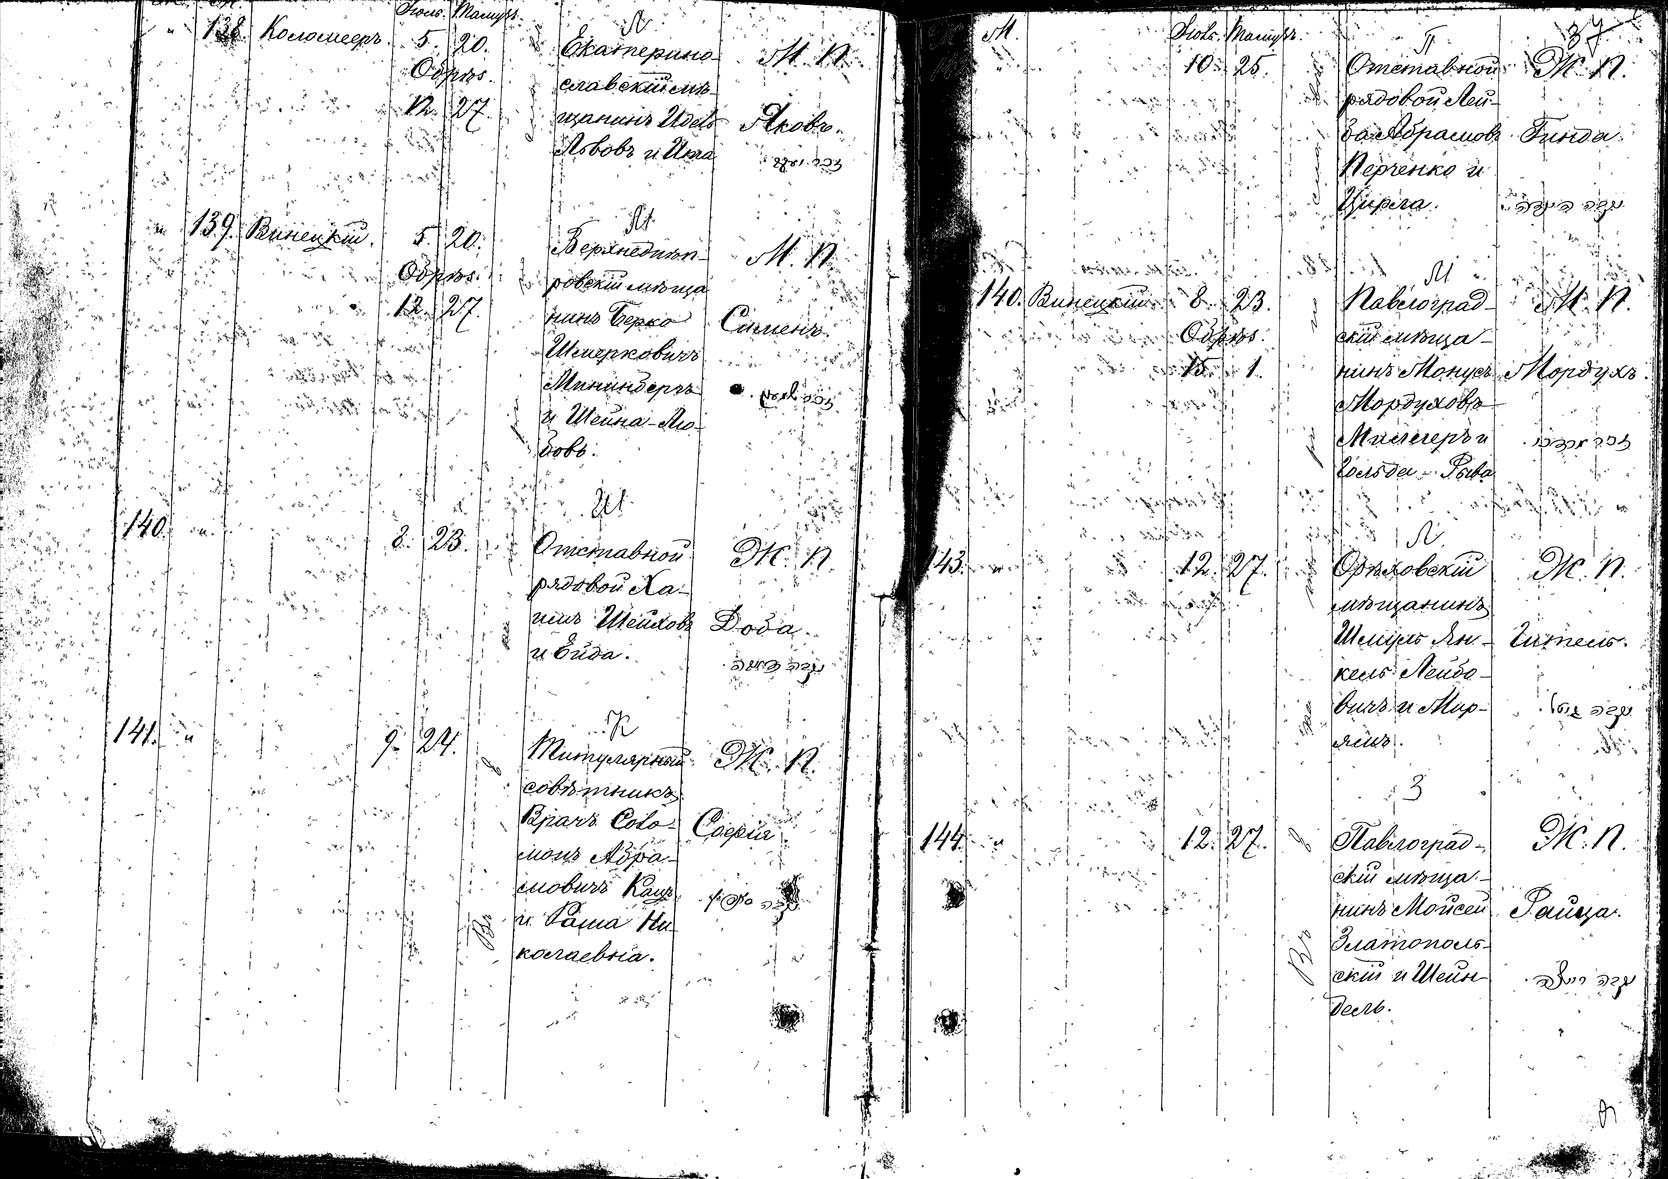 М.
Іюль. Тамузъ.
138. Коломееръ. 5. 20.
Обрѣз.
12. 27.
Л
Екатерино-
славскій мѣ-
щанинъ Идель
Львовъ и Ита
М. П.
Яковъ.
זכר יעקב
139. Винецкій. 5. 20.
Обрѣз.
12. 27.
М
Верхнеднѣп-
ровскій мѣща
нинъ Берко
Шмерковичъ
Мининбергъ
и Шейна-Лю-
бовь.
М. П.
Сименъ
140. " 8. 23.
Ш
Отставной
рядовой Ха-
имъ Шейховъ
и Ейда.
Ж. П.
Доба.
141. " 9. 24.
К
Титулярный
совѣтникъ
Врачъ Соло-
монъ Абра-
мовичъ Кацъ
и Раша Ни-
колаевна.
Ж. П.
Софія
Въ
37
М
Іюль. Тамузъ.
10. 25.
П
Отставной
рядовой Лей-
ба Абрамовъ
Перченко и
Цирла.
Ж. П.
Гинда.
140. Винецкій 8. 23.
Обрѣз.
15. 1.
М
Павлоград-
скій мѣща-
нинъ Монусъ
Мордуховъ
Миллеръ и
Гольда-Рыва
М. П.
Мордухъ.
זכר מרדכי
143. " 12. 27.
Л
Орѣховскій
мѣщанинъ
Шмуль Ян-
кель Лейбо-
вичъ и Мир-
ямъ.
Ж. П.
Гитель.
144. " 12. 27.
З
Павлоград-
скій мѣща-
нинъ Мойсей
Златополь-
скій и Шейн-
дель.
Ж. П.
Райца.
Въ